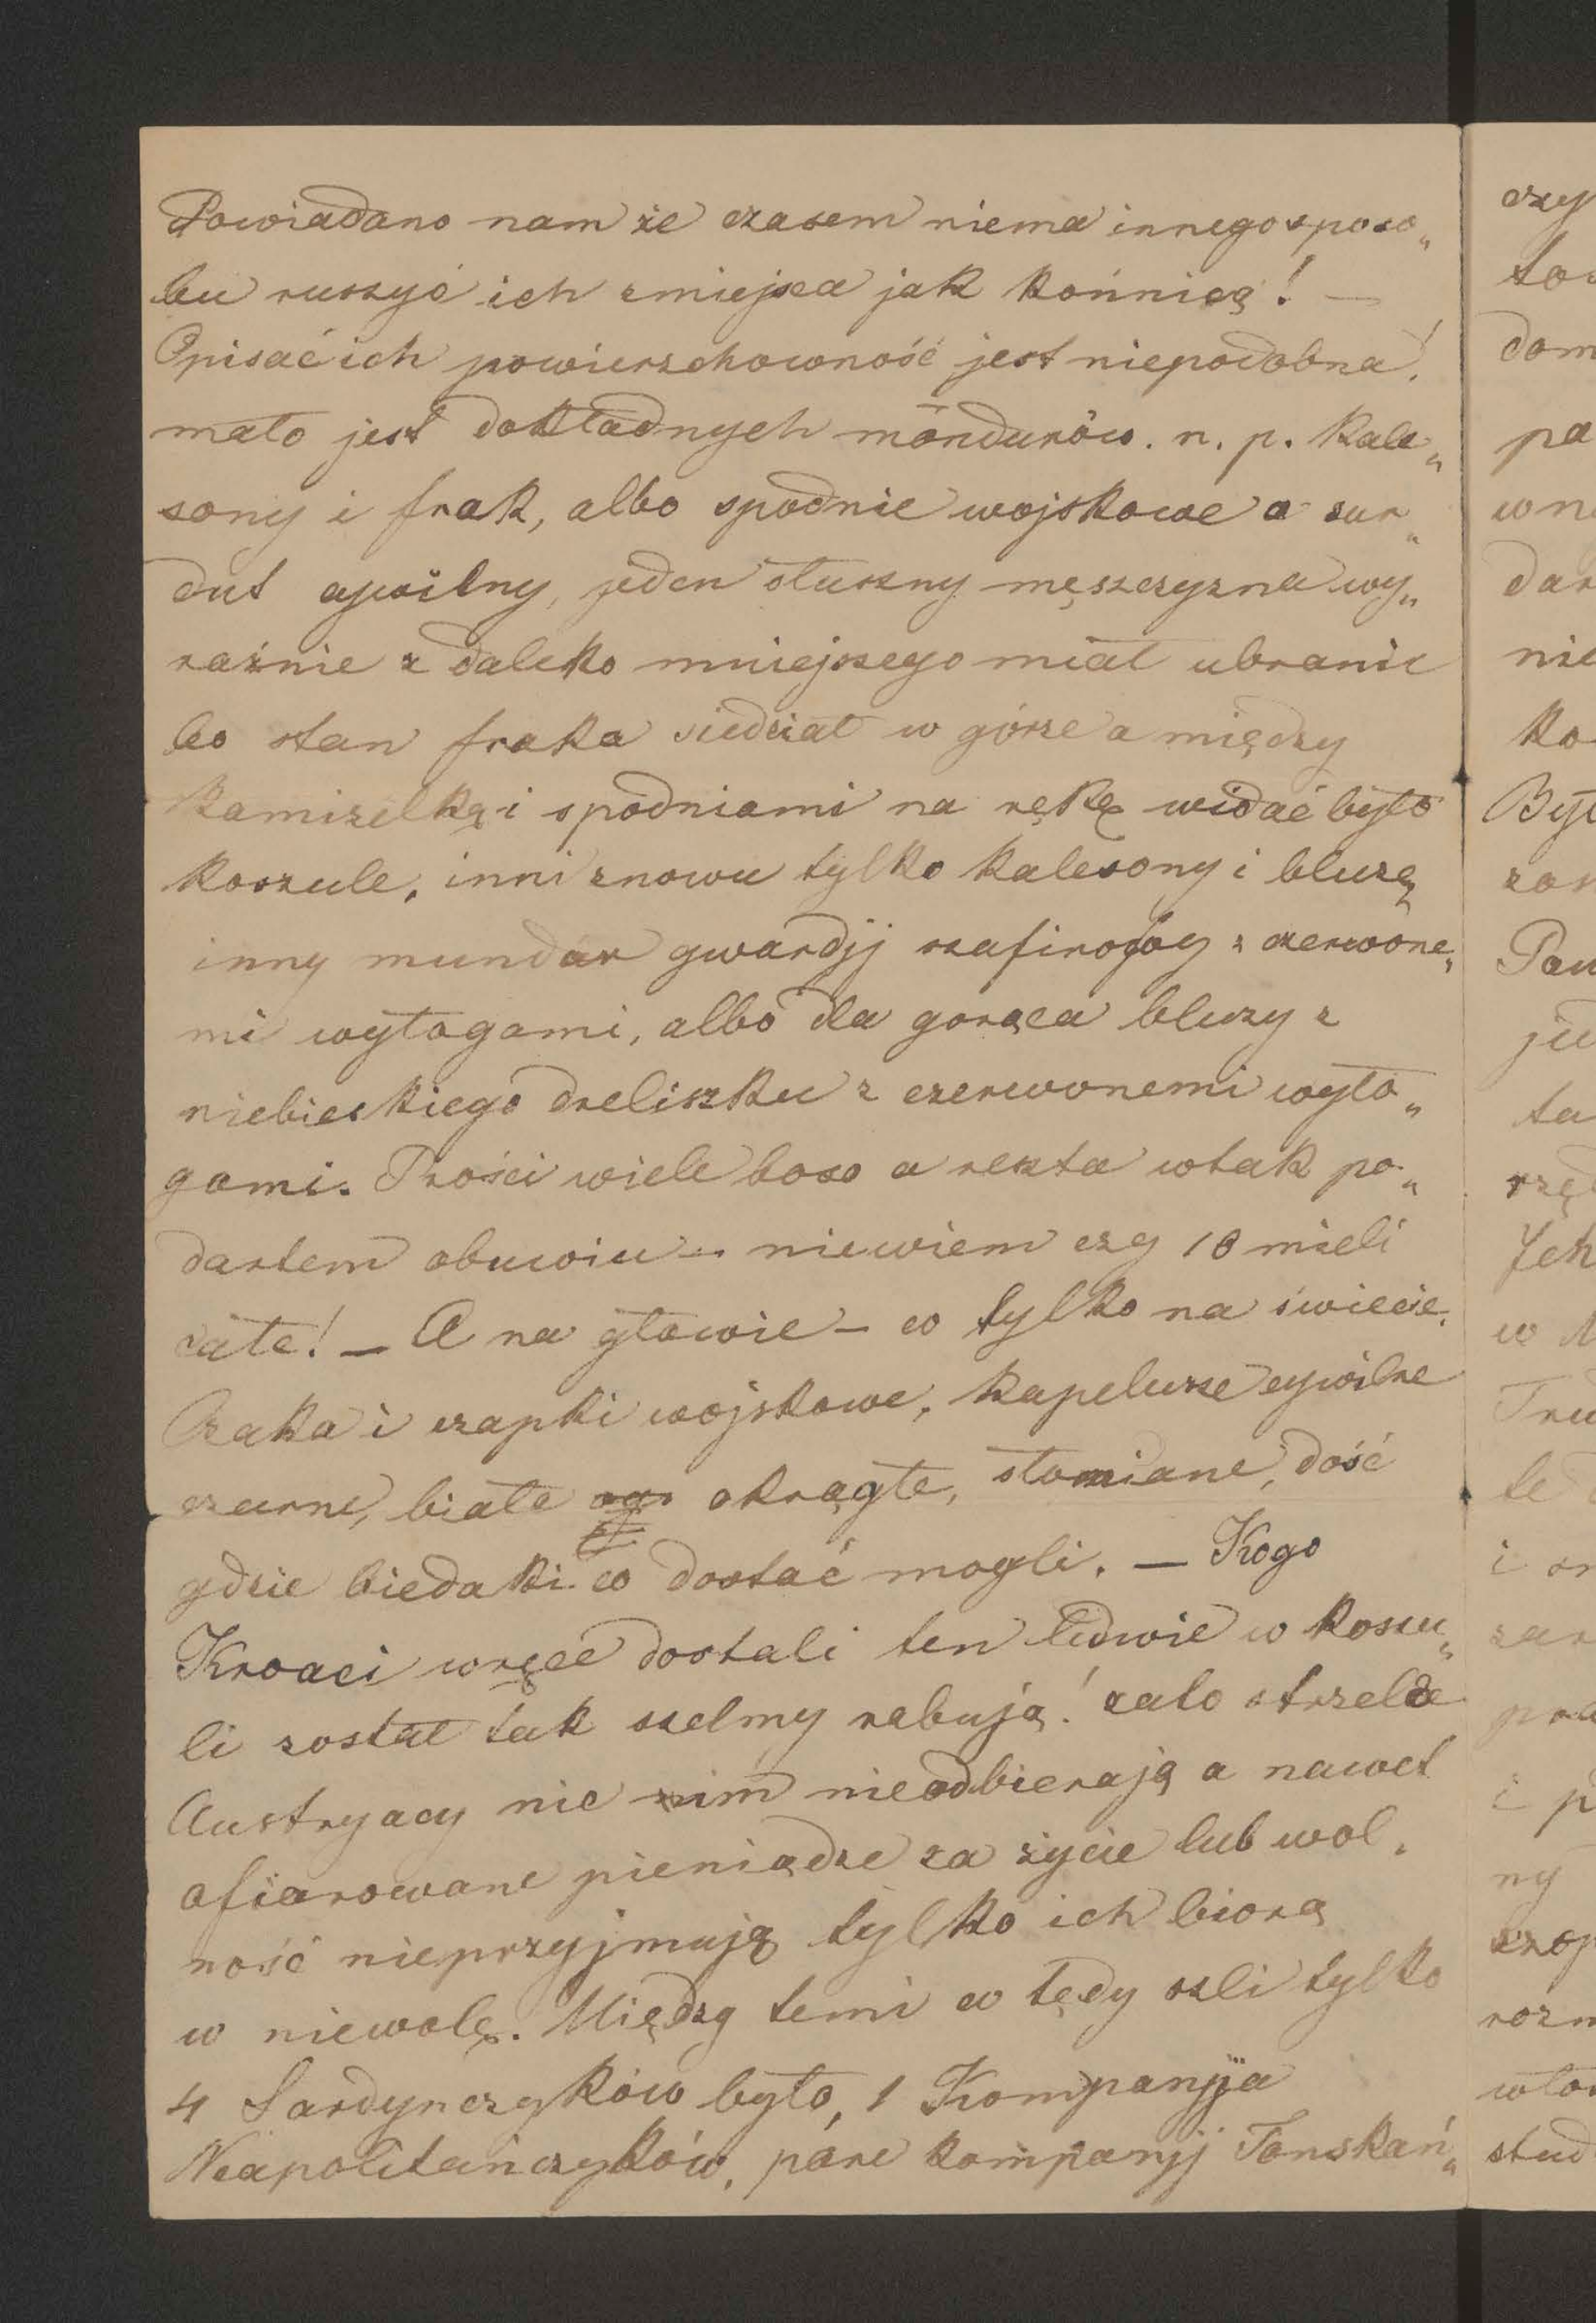 Powiadano nam że czasem niema innego sposo„
bu ruszyć ich zmiejsca jak końnicą! —
Opisać ich powierzchowność jest niepodobna!
mało jest dokładnych möndurów. n. p. Kale„
sony i frak, albo spodnie wojskowe a sur„
dut cywilny, jeden słuszny męszczyzna wy„
raźnie z daleko mniejszego miał ubranie
bo stan fraka siedział w górze a między
Kamizelką i spodniami na rękę widać było
Koszule, inni znowu tylko Kalesony i bluzę
inny mundur gwardjj szafirowy z czerwone„
mi wyłogami, albo dla gorąca bluzy z
niebieskiego dreliszku z czerwonemi wyło„
gami. Prości wiele boso a reszta wtak po„
dartem obuwiu — niewiem czy 10 mieli
całe! — A na głowie — co tylko na świecie.
Czaka i czapki wojskowe, Kapelusze cywilne
czarne, białe okrągłe, słomiane, dość
gdzie biedaki co dostać mogli. — Kogo
Kroaci wręce dostali ten ledwie w koszu„
li został tak szelmy rabują! zato strzelce
Austryacy nic im nieodbierają a nawet
ofiarowane pieniądze za życie lub wol„
ność nieprzyjmują tylko ich biorą
w niewolę. Między temi co tędy szli tylko
4 Sardynczyków było, 1 Kompanija
Neapolitańczyków, pare kompanjj Tonskań„